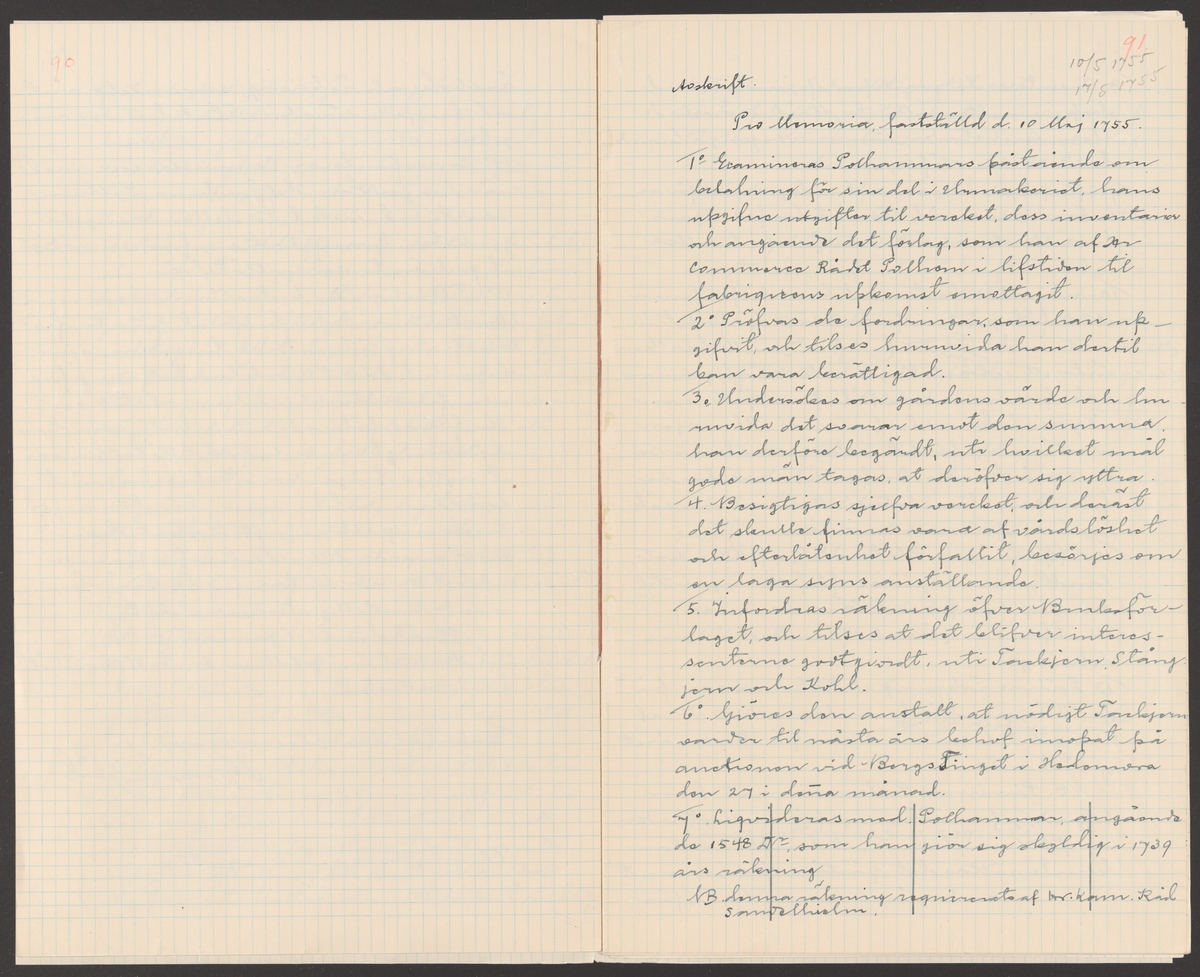 90
91
10/5 1755
17/5 1755
Avskrift.
Pro Memoria, fastställd d. 10 Maj 1755.
1º Examineras Polhammars påstående om
betalning för sin del i Urmakeriet, hans
upgifne utgifter til vercket, dess inventarier
och angående det förlag, som han af Hr
Commerce Rådet Polhem i lifstiden til
fabriquens upkomst emottagit.
2º Pröfvas de fordringar, som han up-
gifvit, och tilses huruvida han dertil
kan vara berättigad.
3. Undersökes om gårdens värde och hu-
ruvida det svarar emot den summa,
han derföre begärdt, uti hvilket mål
gode män tagas, at deröfver sig yttra.
4. Besigtigas sjelfva vercket, och deräst
det skulle finnas vara af vårdslöshet
och efterlåtenhet förfallit, besörjes om
en laga syns anställande.
5. Infordras räkning öfver Bruksför-
laget, och tilses at det blifver interes-
senterne godtgiordt, uti Tackjern, Stång-
jern och Kohl.
6º Giöres den anstalt, at nödigt Tackjern
varder til nästa års behof inropat på
auctionen vid BergsTinget i Hedemora
den 27 i den̄a månad.
7º. Liqvideras med Polhammar, angående
de 1548 Dr, som han giör sig skyldig i 1739
års räkning
NB denna räkning requirerats af Hr. Kam. Råd
Sandelhielm.